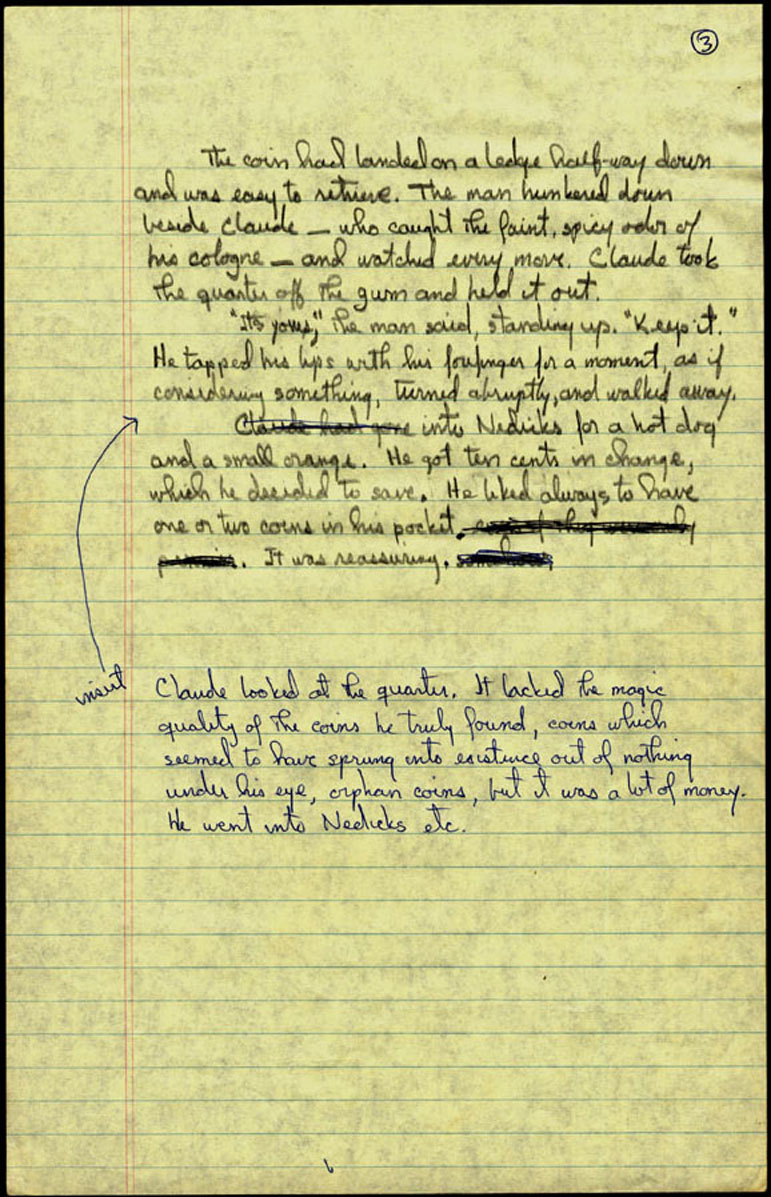 3
The coin had landed on a ledge half-way down
and was easy to retrieve. The man hunkered down
beside Claude — who caught the faint, spicy odor of
his cologne — and watched every move. Claude took
the quarter off the gum and held it out.
"It's yours," the man said, standing up. "Keep it."
He tapped his lips with his forefinger for a moment, as if
considering something, turned abruptly, and walked away.
Claude had gone into Nedicks for a hot dog
and a small orange. He got ten cents in change,
which he decided to save. He liked always to have
one or two coins in his pocket.
. It was reassuring.
insert
Claude looked at the quarter. It lacked the magic
quality of the coins he truly found, coins which
seemed to have sprung into existence out of nothing
under his eye, orphan coins, but it was a lot of money.
He went into Nedicks etc.